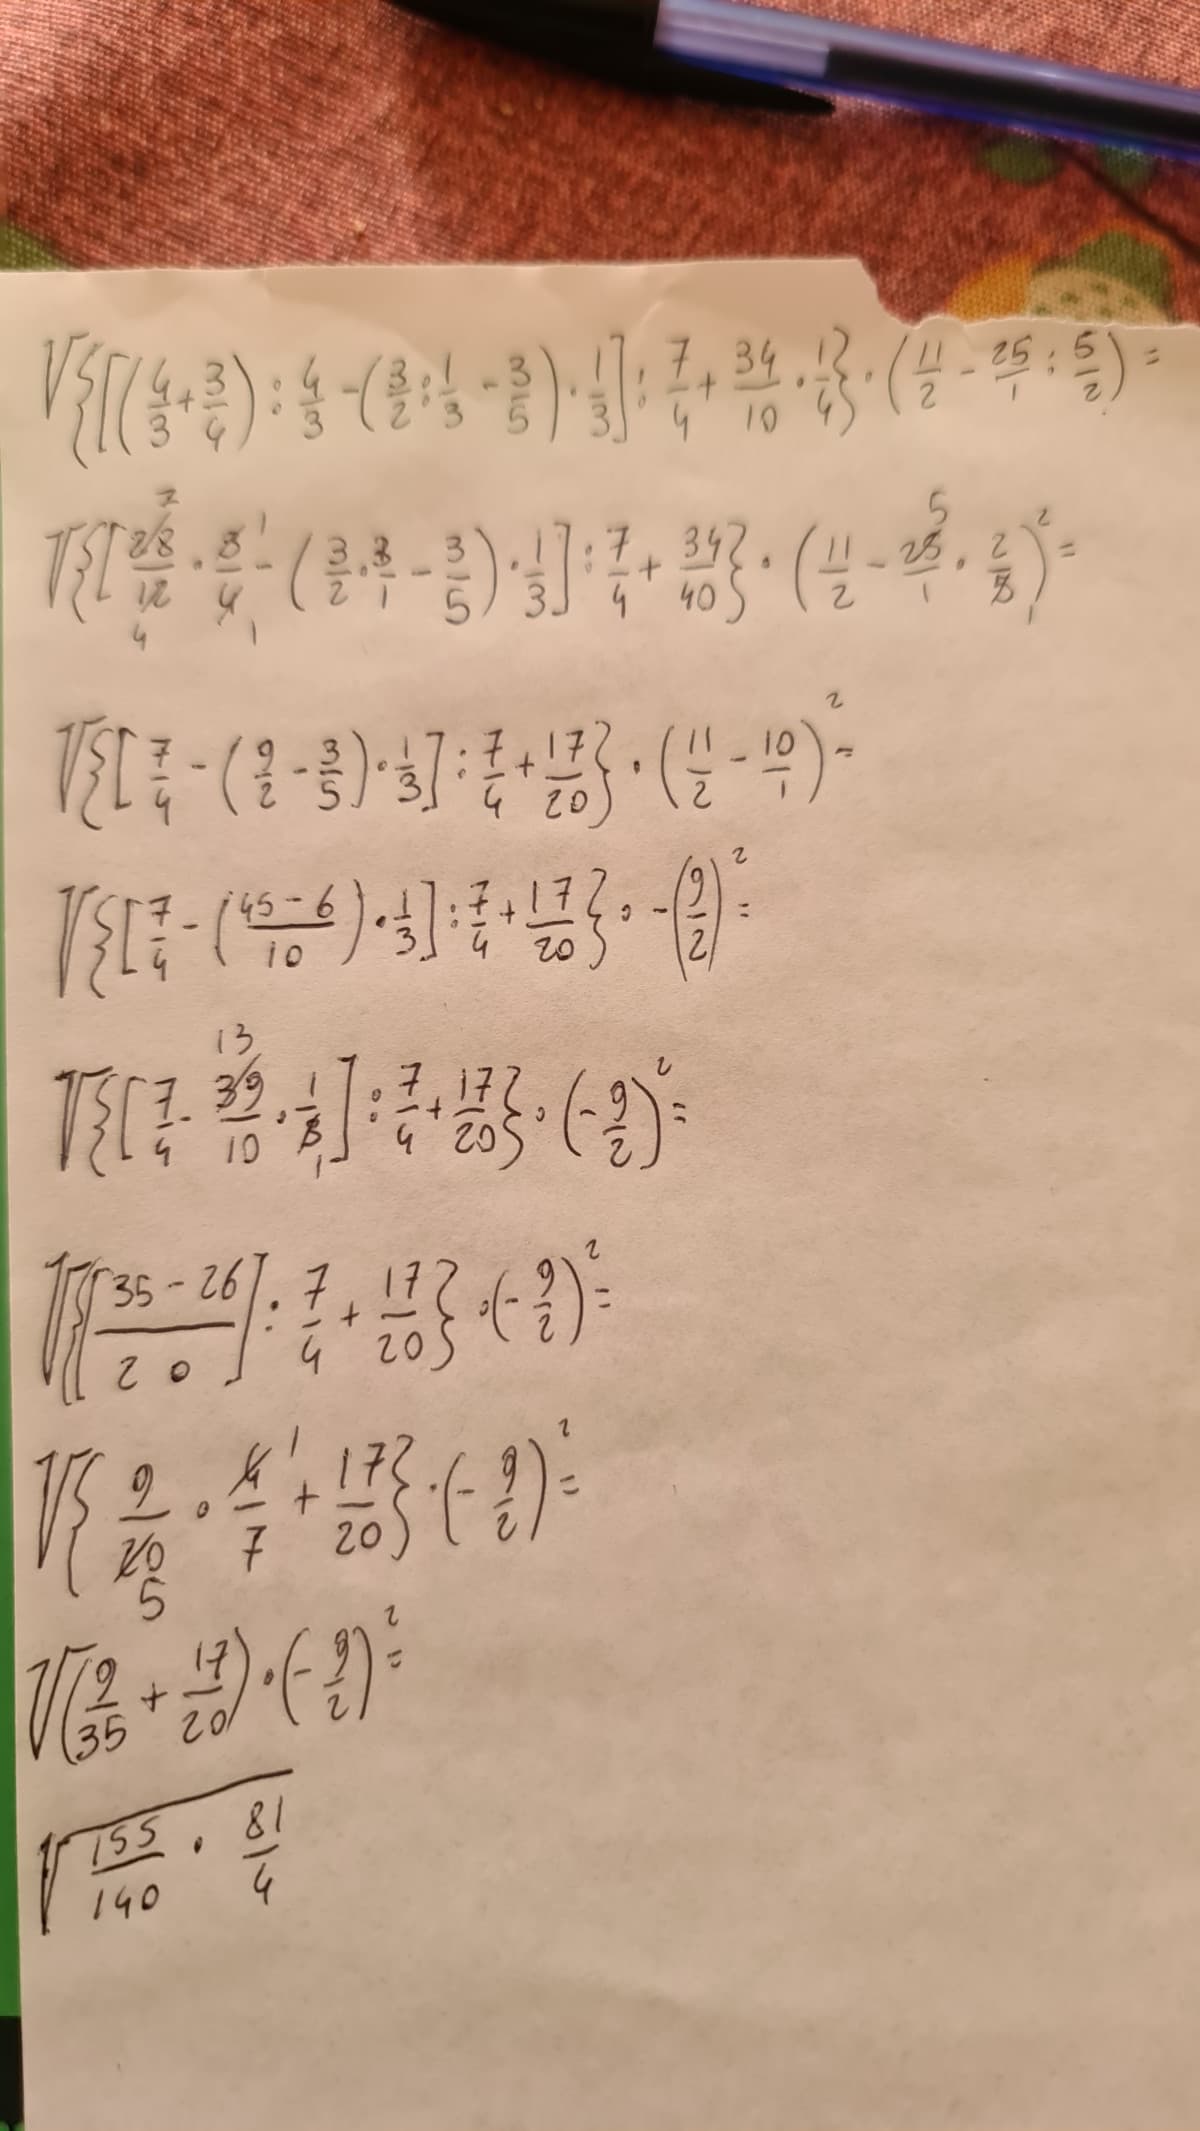 √{[(4/3+3/4):4/3-(3/2:1/3-3/5)·1/3]:7/4+34/10·1/4}·(11/2-25/1:5/2)=
√{[28/12·3/4-(3/2·3/1-3/5)·1/3]:7/4+34/40}·(11/2-25/1·2/5)²=
√{[7/4-(9/2-3/5)·1/3]:7/4+17/20}·(11/2-10/1)²=
√{[7/4-(45-6/10)·1/3]:7/4+17/20}·-(9/2)²=
√{[7/4-39/10·1/3]:7/4+17/20}·(-9/2)²=
√{[35-26/20]:7/4+17/20}·(-9/2)²=
√{9/20·4/7+17/20}·(-9/2)²=
√(9/35+17/20)·(-9/2)²=
√155/140·81/4